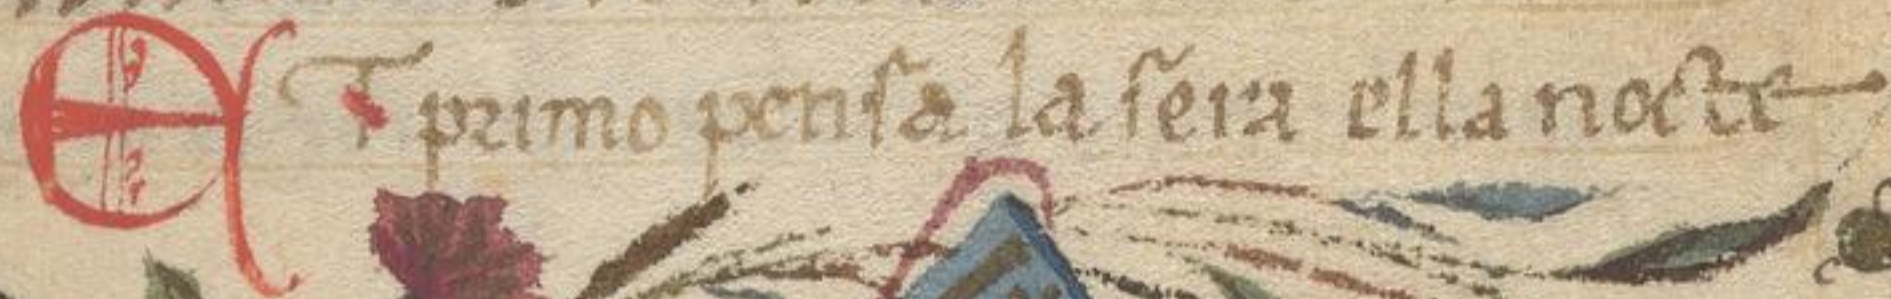 ET primo pensa la sera ella nocte